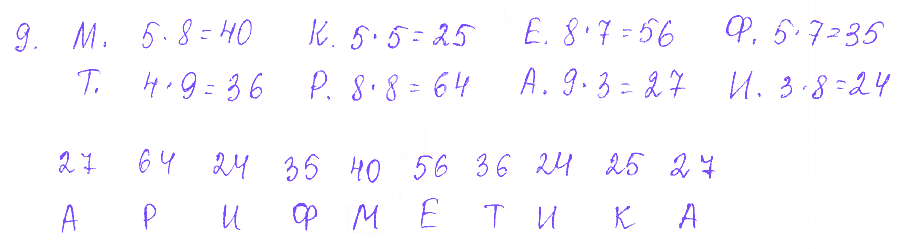 9. М. 5·8=40 К. 5·5=25 Е. 8·7=56 Ф. 5·7=35
Т. 4·9=36 Р. 8·8=64 А. 9·3=27 И. 3·8=24
27 64 24 35 40 56 36 24 25 27
А Р И Ф М Е Т И К А